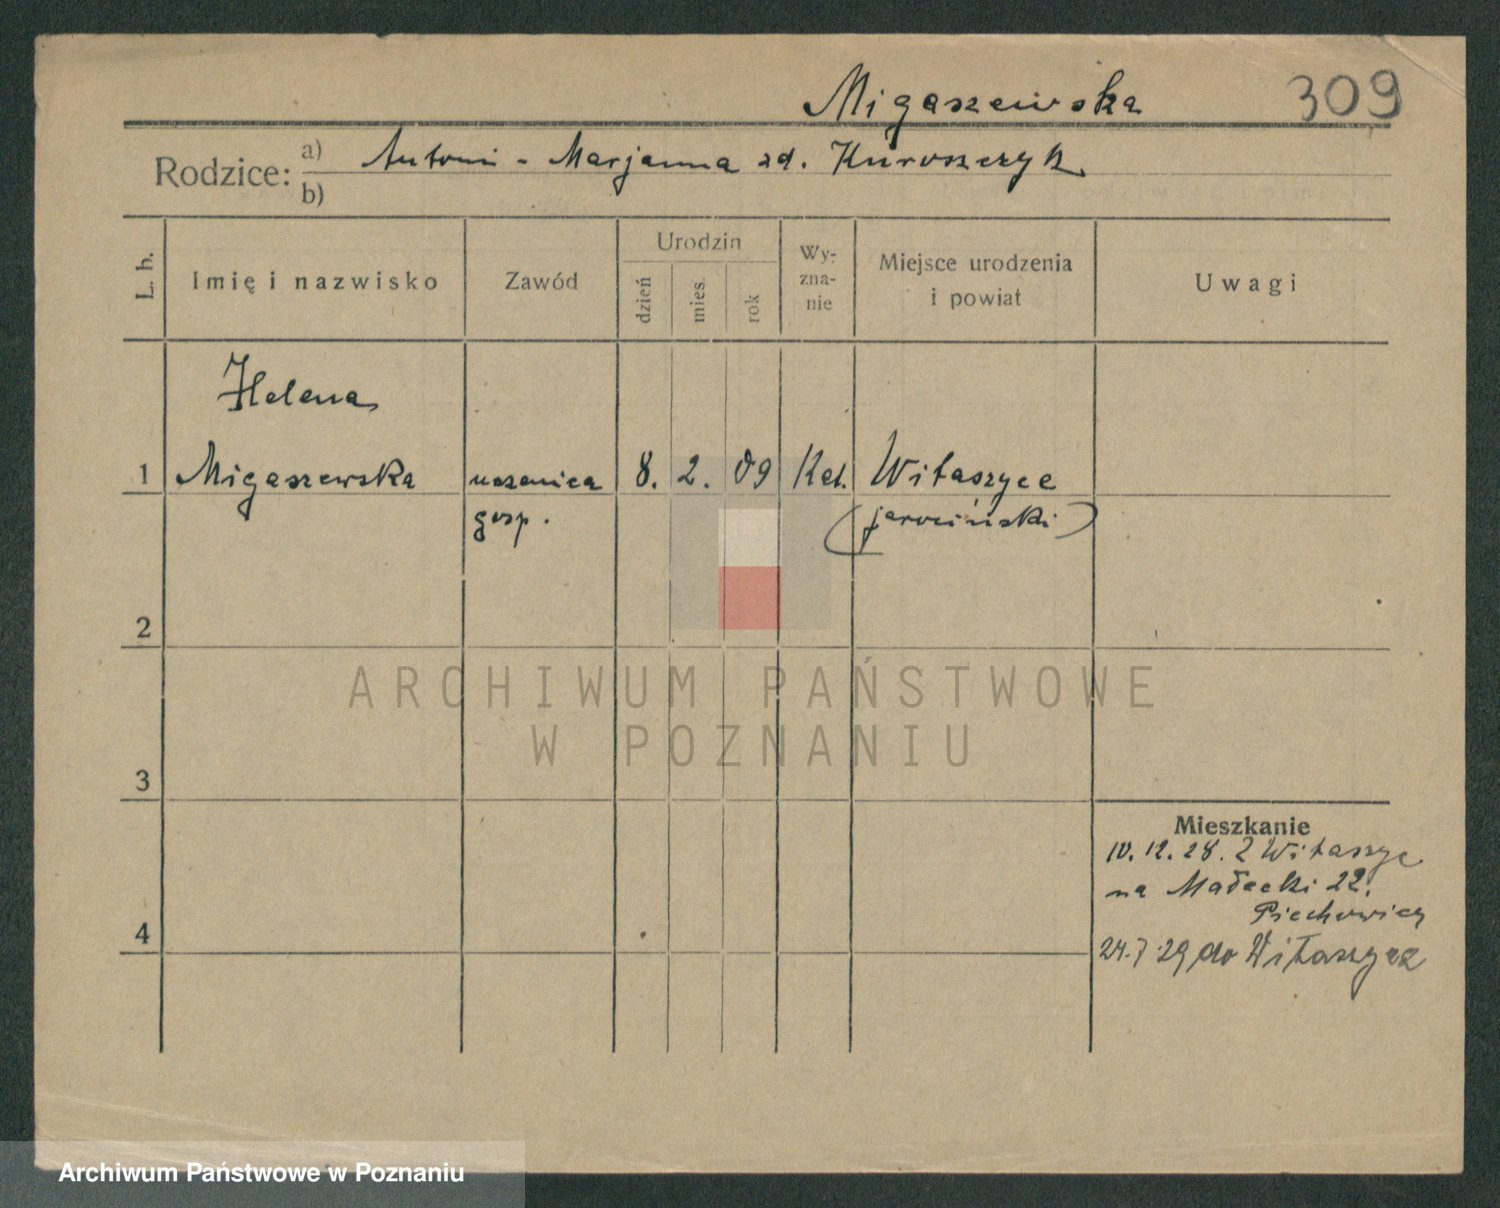 Migaszewska 309
Rodzice: a) Antoni - Marjanna zd. Kuroszczyk
b)
L. b. Imię i nazwisko Zawód Urodzin dzień mies. rok Wyznanie Miejsce urodzenia i powiat Uwagi
Helena
1 Migaszewska uczenica 8. 2. 09 Kat. Witaszyce
gosp. (jarociński)
2
ARCHIWUM PAŃSTWOWE
W POZNANIU
3
Mieszkanie
10. 12. 28. z Witaszyc
na Małecki 22.
4 Piechowicz
24.7.29 do Witaszyce
Archiwum Państwowe w Poznaniu